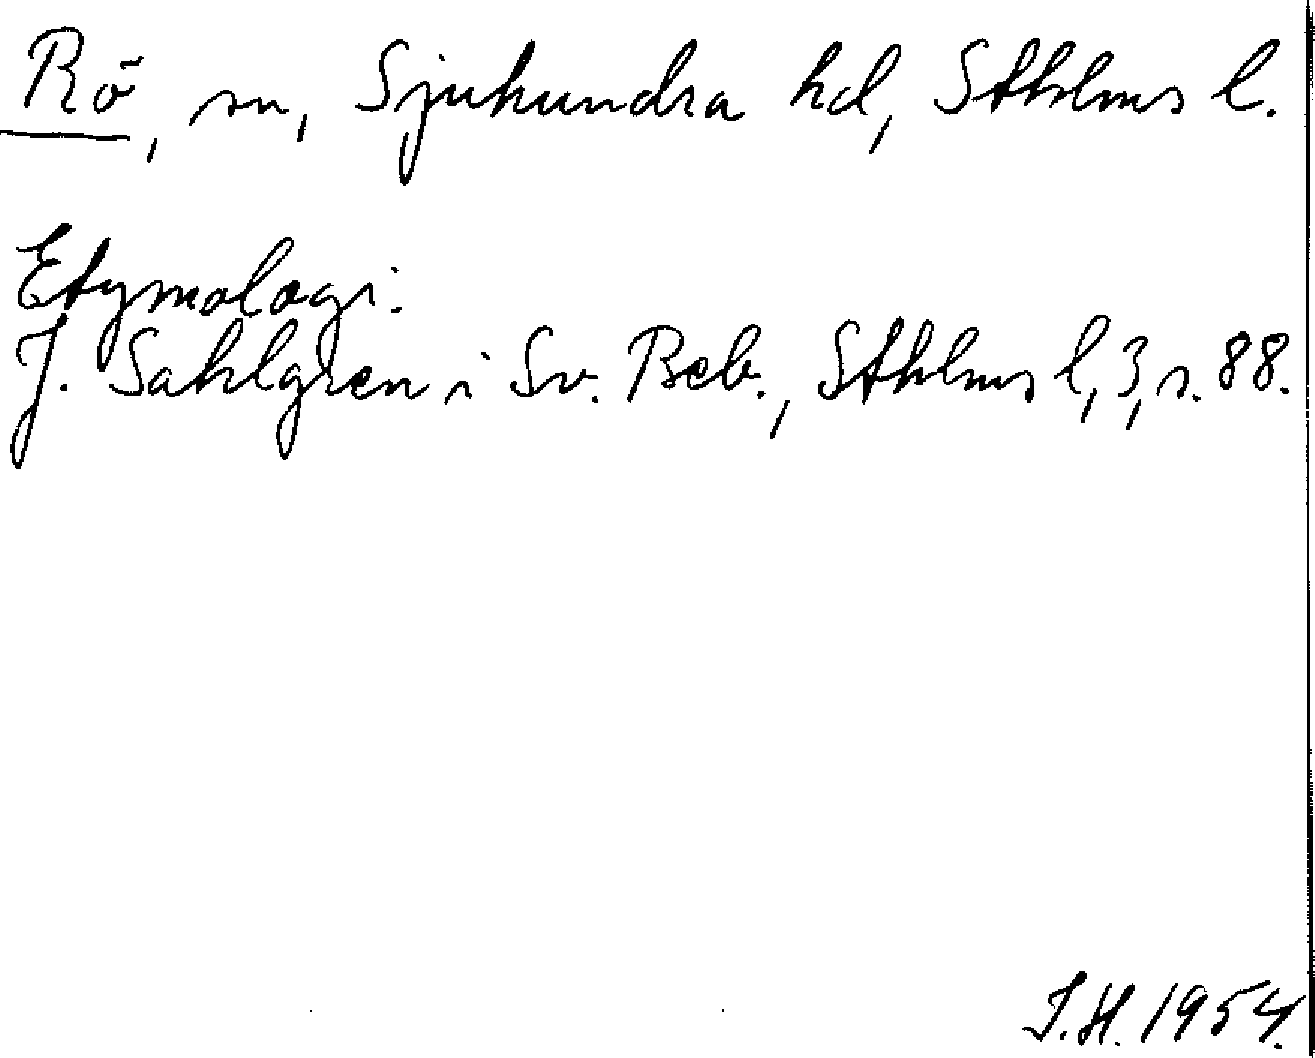 Rö, sn, Sjuhundra hd, Sthlms l.
Etymologi.
J. Sahlgren i Sv. Beb., Sthlms l, 3, s. 88.
I.H. 1954.